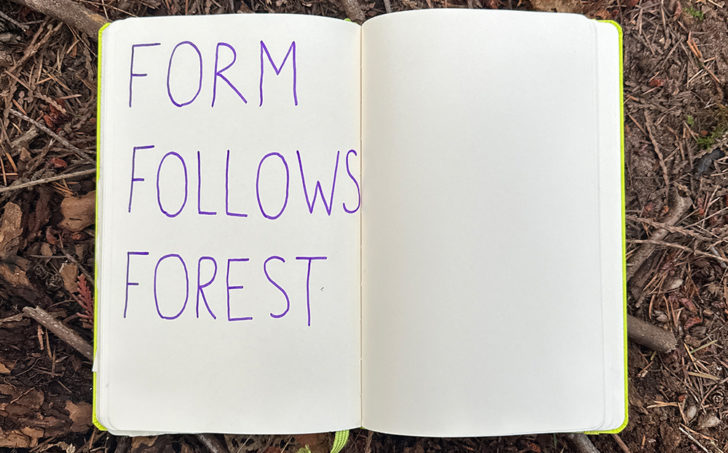 FORM
FOLLOWS
FOREST